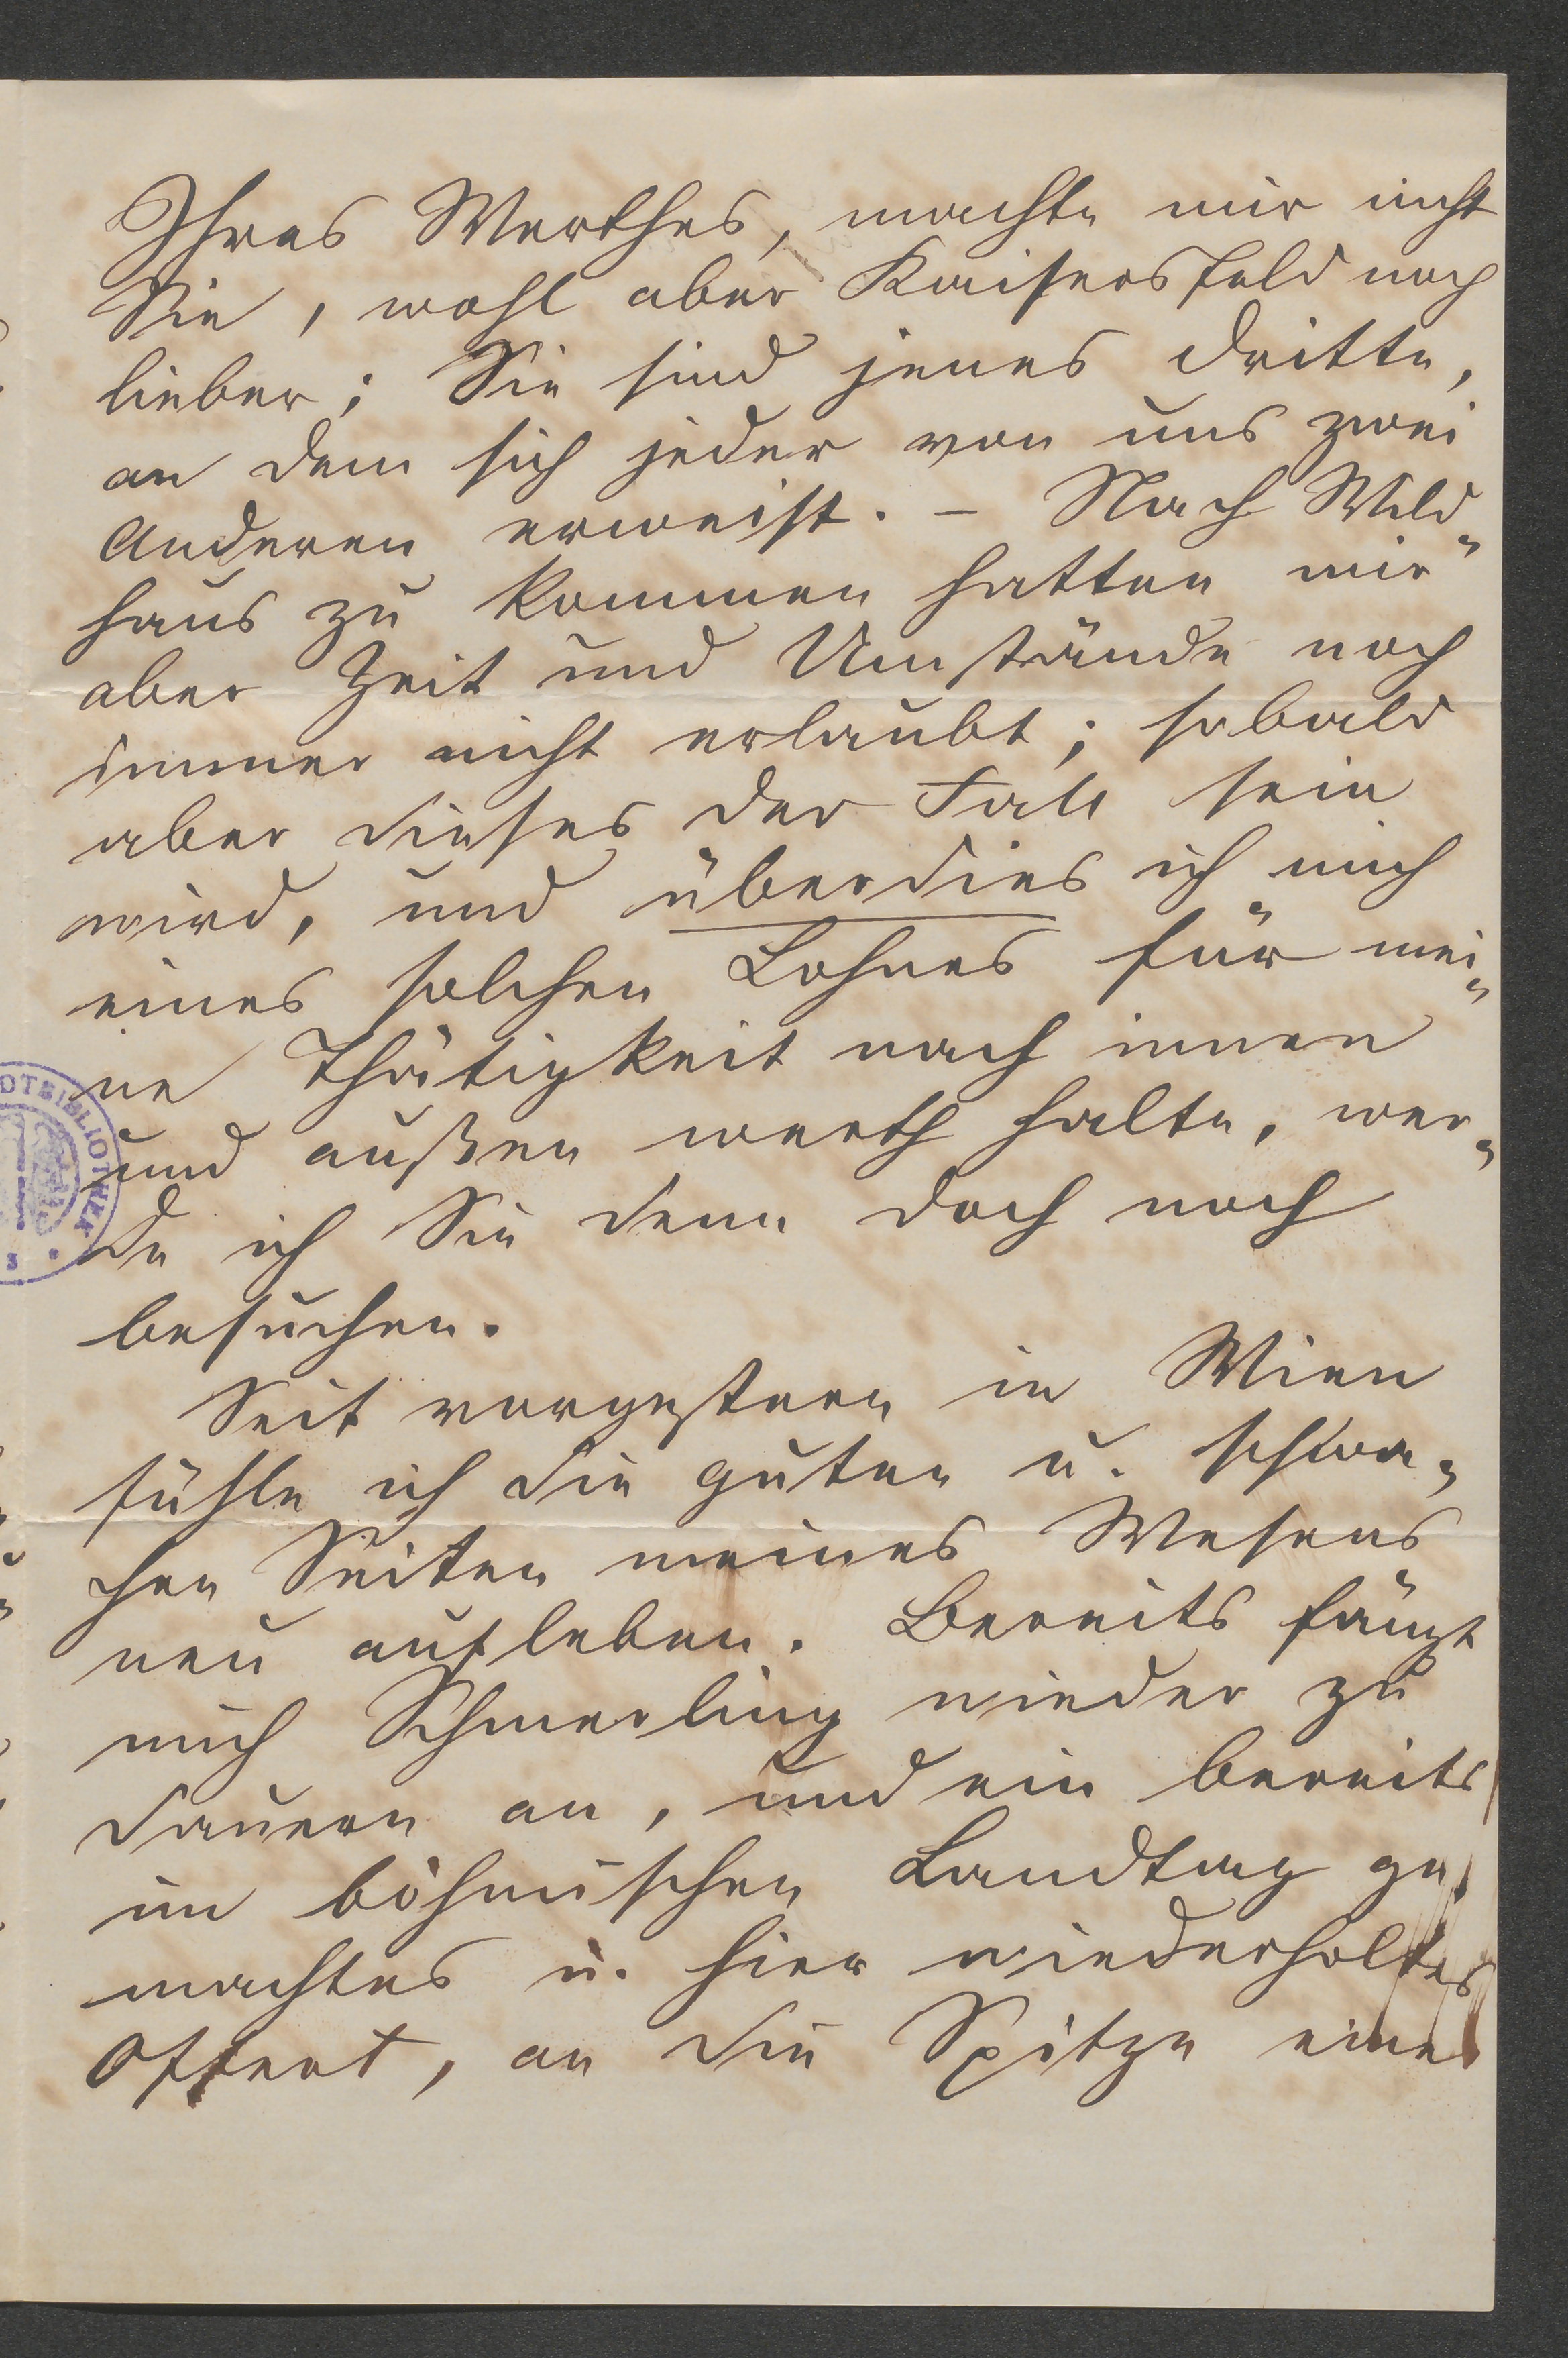 Ihres Werthes, machte mir nicht
Sie, wohl aber Kaisersfeld noch
lieber; Sie sind jenes Dritte,
an dem sich jeder von uns zwei
Anderen erweist. – Nach Wild-
haus zu kommen hatten mir
aber Zeit und Umstände noch
immer nicht erlaubt; sobald
aber dieses der Fall sein
wird, und überdies ich mich
eines solchen Lohnes für mei-
ne Thätigkeit nach innen
und außen werth halte, wer-
de ich Sie denn doch noch
besuchen.
Seit vorgestern in Wien
fühle ich die guten u. schwa-
chen Seiten meines Wesens
neu aufleben. Bereits fängt
mich Schmerling wieder zu
dauern an, und ein bereits
im böhmischen Landtag ge-
machtes u. hier wiederholtes
Offert, an die Spitze eines
DTBIBLIOTHEK